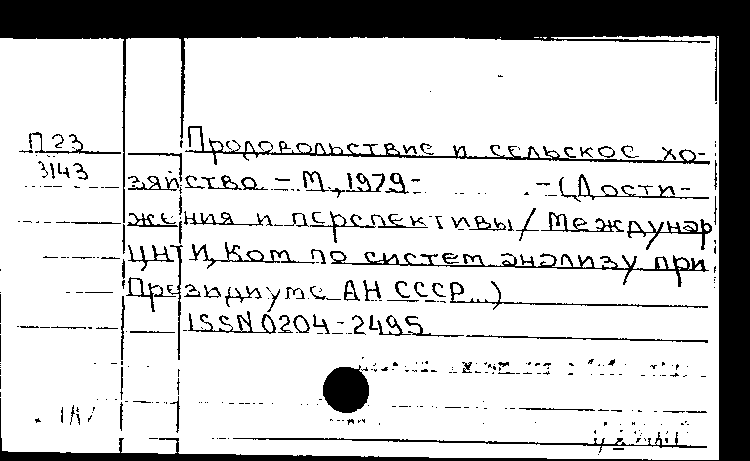 П 23
3143
Продовольствие и сельское хо-
зяйство. – М., 1979-          . – (Дости-
жения и перспективы / Междунар
ЦНТИ, Ком по систем анализу при
Президиуме АН СССР...)
ISSN 0204-2495